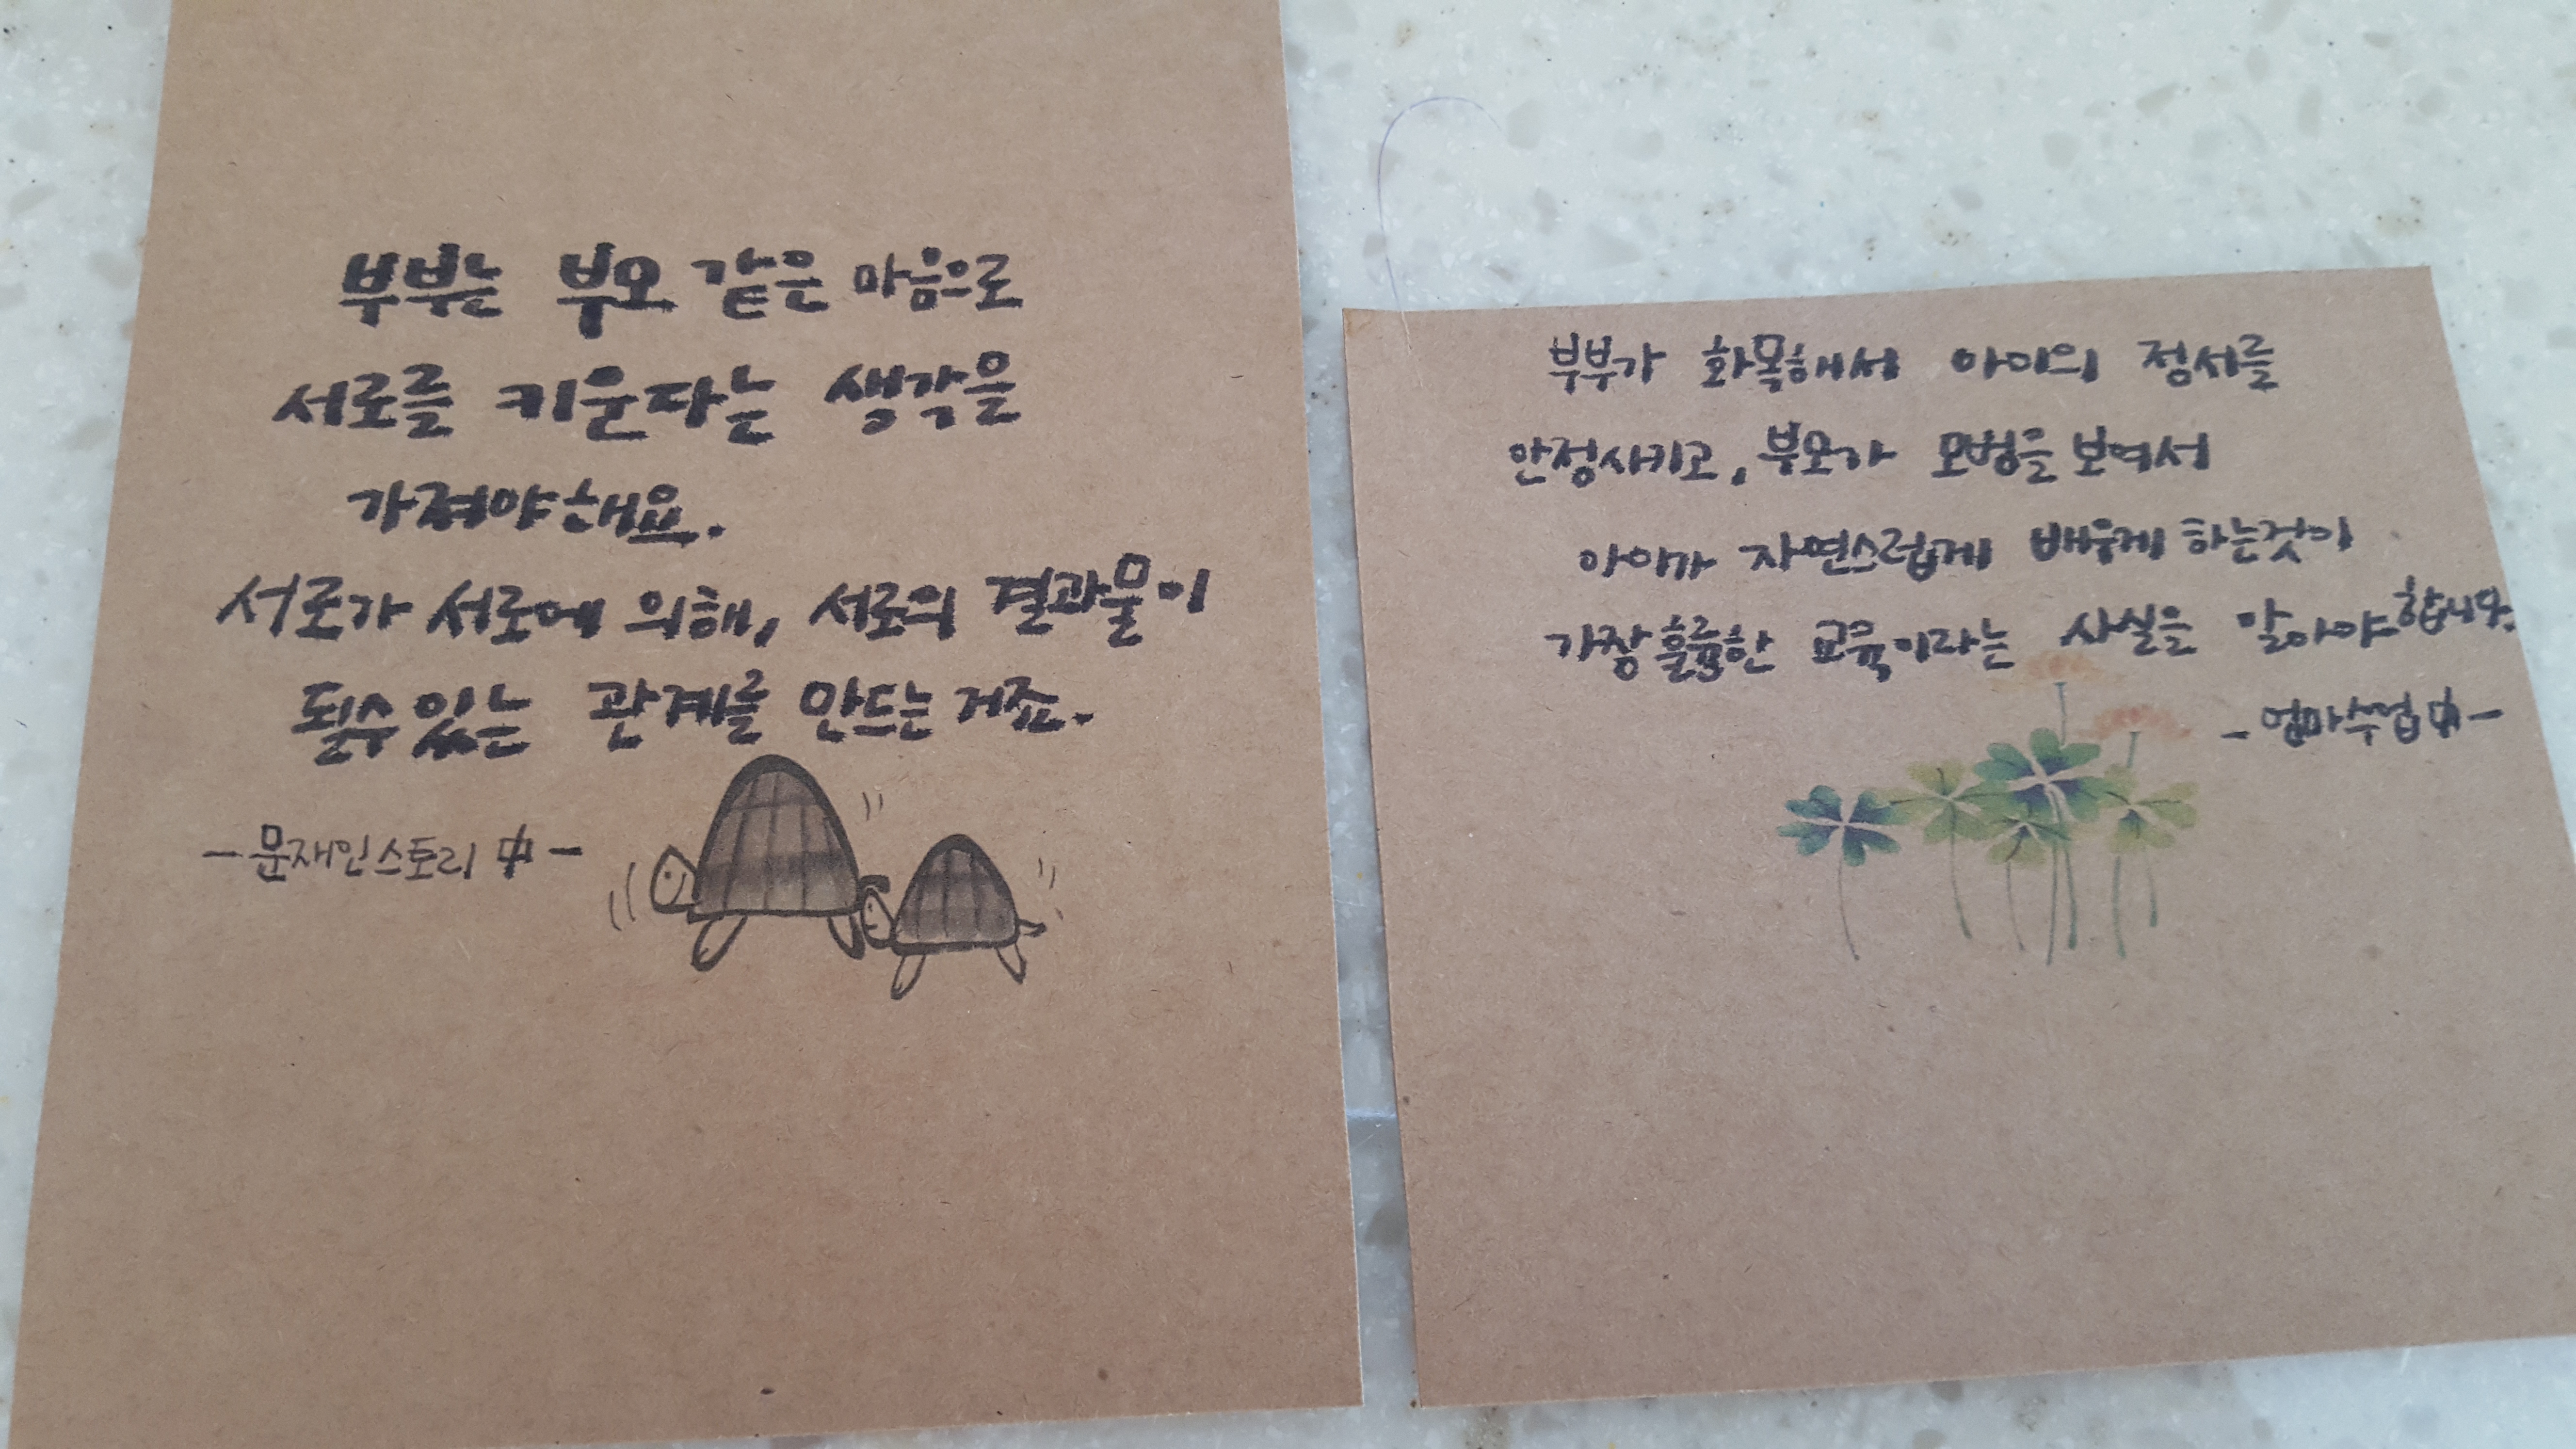 부부는 부모 같은 마음으로
서로를 키운다는 생각을
가져야해요.
서로가 서로에 의해, 서로의 결과물이
될수 있는 관계를 만드는 거죠.
-문재인스토리 中-
부부가 화목해서 아이의 정서를
안정시키고, 부모가 모범을 보여서
아이가 자연스럽게 배우게 하는것이
가장 훌륭한 교육이라는 사실을 알아야합니다.
-엄마수업 中-